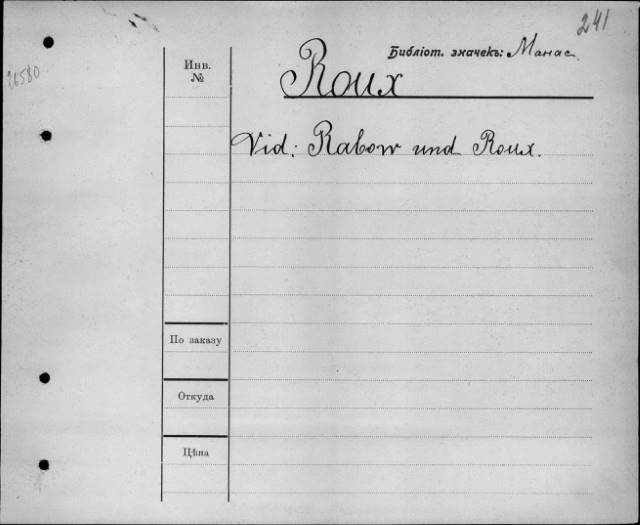 241
Библіот. значекъ: Манас.
26580
Инв.
№
Roux
Vid: Rabow und Roux.
По заказу
Откуда
Цѣна